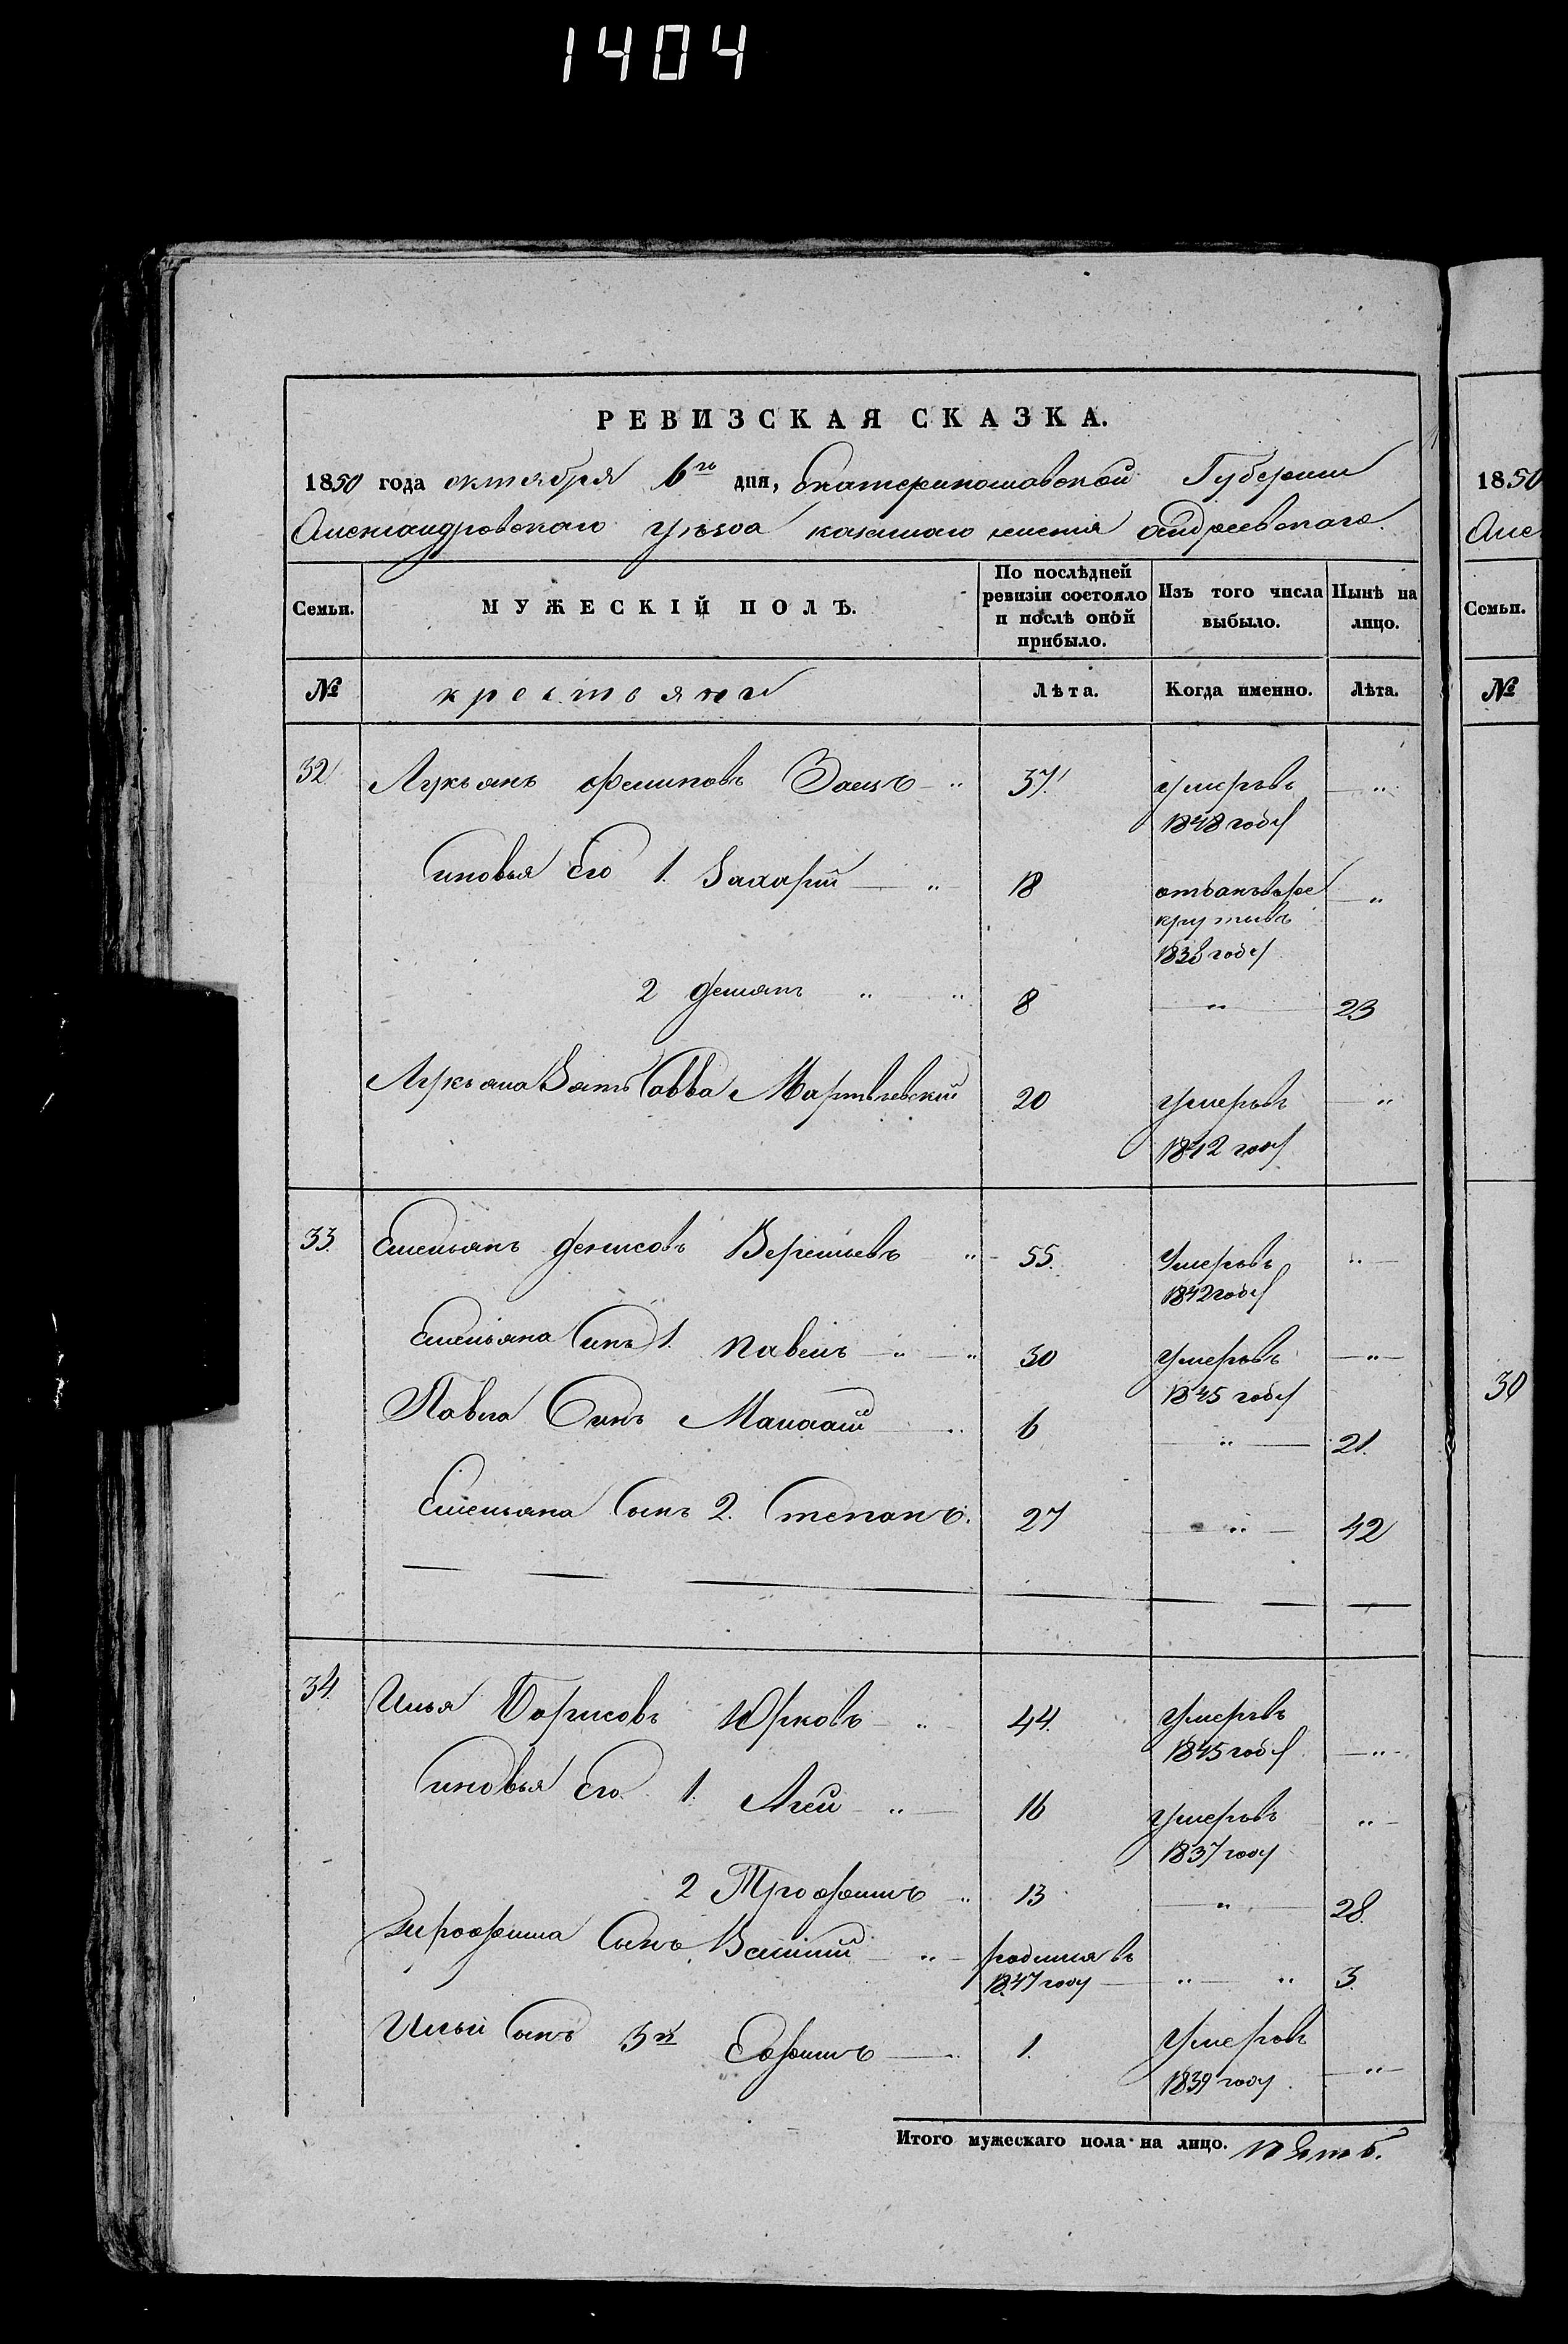 1404
РЕВИЗСКАЯ СКАЗКА.
1850 года октября 6го дня, Екатеринославской Губернии
Александровского уезда казенного местя андреевского
Семьи. МУЖЕСКІЙ ПОЛЪ. По послѣдней ревизіи состояло и послѣ оной прибыло. Изъ того числа выбыло. Нынѣ на лицо.
№ крестьяне Лѣта. Когда именно. Лѣта.
32 Лукьянъ Филиповъ Заецъ 37 умеръвъ
1848 году
Синовья Его 1. Захарий 18 отъданъвъре
крутывъ
1838 году
2 Демянъ 8 23
Лукьяна Зять Савва 20 умеръвъ
1842 году
33. Емельянъ Денисовъ 55. Умеръвъ
1842 году
Емельяна Синъ 1. Павелъ 30 умеръвъ
1845 году
Павла Синъ 6 21.
Емельяна Сынъ 2. Степанъ. 27 42
34. Илья Борисовъ Юрковъ 44. умеръвъ
1845 году
Синовья Его 1. Агей 16 умеръвъ
1837 году
2 Трофимъ 13 28.
Трофима Сынъ родился въ
1847 году 3.
Ильи Сынъ 3й Ефимъ 1. Умеръвъ
1839 году
Итого мужескаго пола на лицо. пять.
1850
Але
Семьи.
№
30